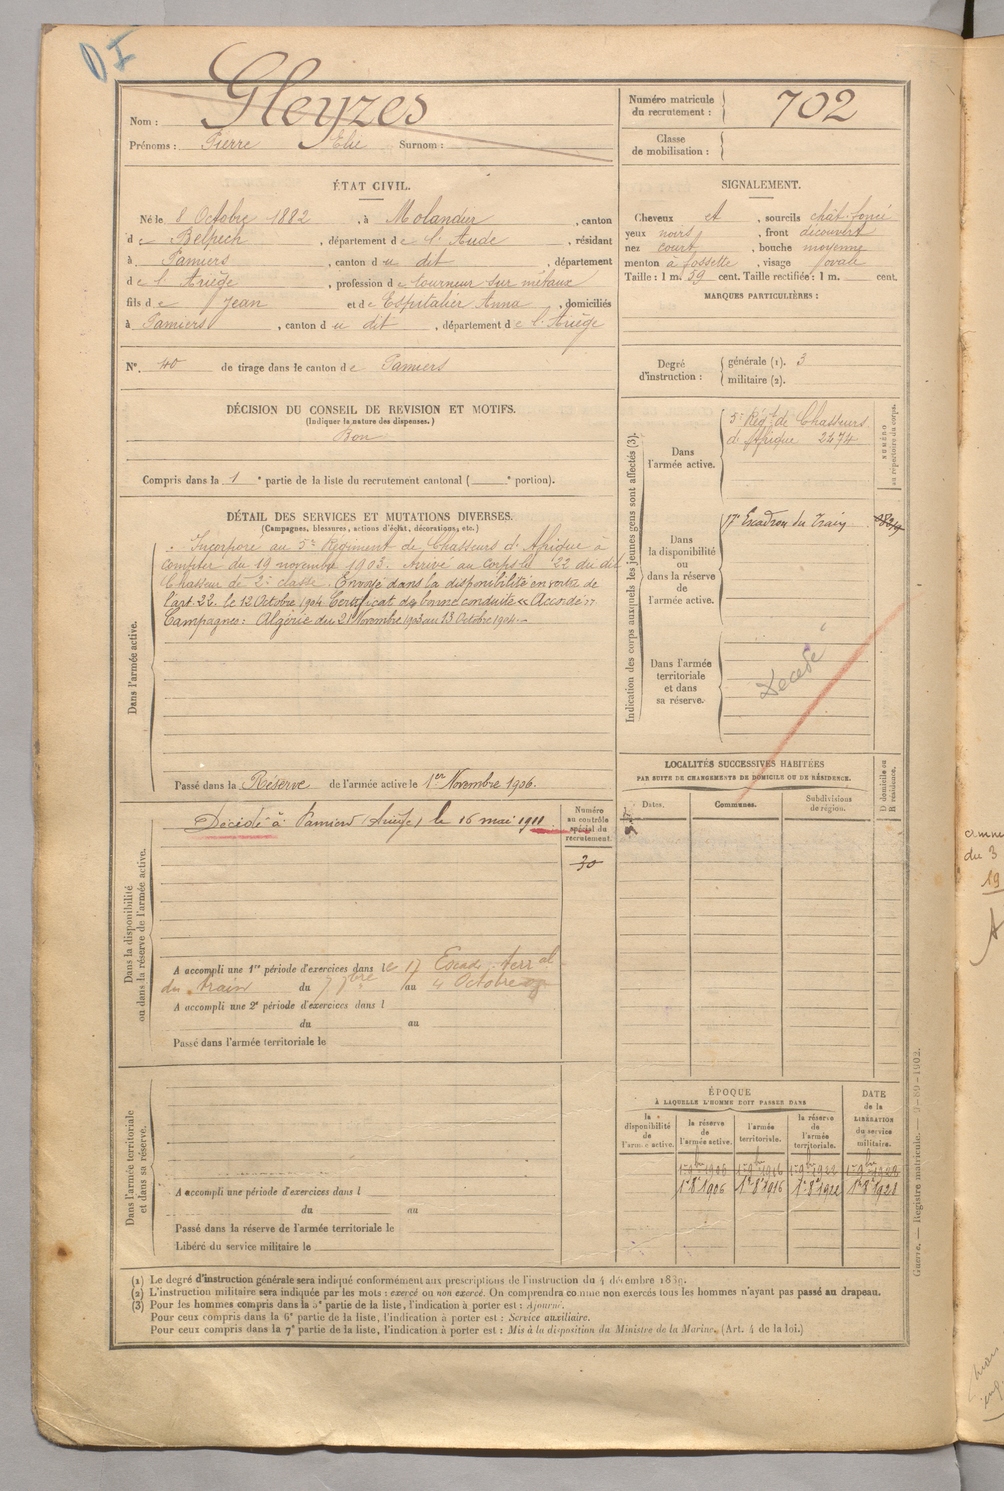 DI
Nom : Gleyzes
Prénoms : Pierre Elie Surnom :
Numéro matricule du recrutement : 702
Classe de mobilisation :
ÉTAT CIVIL.
Né le 8 Octobre 1882, à Molandier, canton
de Belpech, département de l'Aude, résidant
à Pamiers, canton du dit, département
de l'Ariège, profession de tourneur sur métaux
fils de Jean et de Espitalier Anna, domiciliés
à Pamiers, canton du dit, département de l'Ariège
N° 40 de tirage dans le canton de Pamiers
SIGNALEMENT.
Cheveux et, sourcils chât. foncé
yeux noirs, front découvert
nez court, bouche moyenne
menton à fossette, visage ovale
Taille : 1 m. 59 cent. Taille rectifiée : 1 m. cent.
MARQUES PARTICULIÈRES :
Degré d'instruction : générale (1). 3
militaire (2).
DÉCISION DU CONSEIL DE REVISION ET MOTIFS.
(Indiquer la nature des dispenses.)
Bon
Compris dans la 1e partie de la liste du recrutement cantonal ( e portion).
DÉTAIL DES SERVICES ET MUTATIONS DIVERSES.
(Campagnes, blessures, actions d'éclat, décorations, etc.)
Dans l'armée active.
Incorporé au 5e Régiment de Chasseurs d'Afrique à
compter du 19 novembre 1903. Arrivé au corps le 22 du dit
Chasseur de 2e classe. Envoyé dans la disponibilité en vertu de
l'art 22. le 12 Octobre 1904 Certificat de bonne conduite « Accordé »
Campagnes : Algérie du 21 Novembre 1903 au 13 Octobre 1904.
Passé dans la Réserve de l'armée active le 1er Novembre 1906.
Indication des corps auxquels les jeunes gens sont affectés (3).
Dans l'armée active.
5e Régt de Chasseurs
d'Afrique 2474
NUMÉRO au répertoire du corps.
Dans la disponibilité ou dans la réserve de l'armée active.
17e Escadron du Train
Dans l'armée territoriale et dans sa réserve.
Décédé
LOCALITÉS SUCCESSIVES HABITÉES
PAR SUITE DE CHANGEMENTS DE DOMICILE OU DE RÉSIDENCE.
Dates. Communes. Subdivisions de région. D domicile ou R résidence.
Dans la disponibilité ou dans la réserve de l'armée active.
Décédé à Pamiers (Ariège) le 16 mai 1911
Numéro au contrôle spécial du recrutement.
30
A accompli une 1re période d'exercices dans le 17 Escad. terral
du train du 7 7bre au 4 Octobre
A accompli une 2e période d'exercices dans l
du au
Passé dans l'armée territoriale le
Dans l'armée territoriale et dans sa réserve.
A accompli une période d'exercices dans l
du au
Passé dans la réserve de l'armée territoriale le
Libéré du service militaire le
ÉPOQUE
À LAQUELLE L'HOMME DOIT PASSER DANS
la disponibilité de l'armée active. la réserve de l'armée active. l'armée territoriale. la réserve de l'armée territoriale.
DATE de la LIBÉRATION du service militaire.
1er 8 1906 1er 8 1916 1er 8 1922 1er 8 1928
(1) Le degré d'instruction générale sera indiqué conformément aux prescriptions de l'instruction du 4 décembre 1889.
(2) L'instruction militaire sera indiquée par les mots : exercé ou non exercé. On comprendra comme non exercés tous les hommes n'ayant pas passé au drapeau.
(3) Pour les hommes compris dans la 5e partie de la liste, l'indication à porter est : Ajourné.
Pour ceux compris dans la 6e partie de la liste, l'indication à porter est : Service auxiliaire.
Pour ceux compris dans la 7e partie de la liste, l'indication à porter est : Mis à la disposition du Ministre de la Marine. (Art. 4 de la loi.)
Guerre. — Registre matricule. — 3-89-1902.
du 3
19